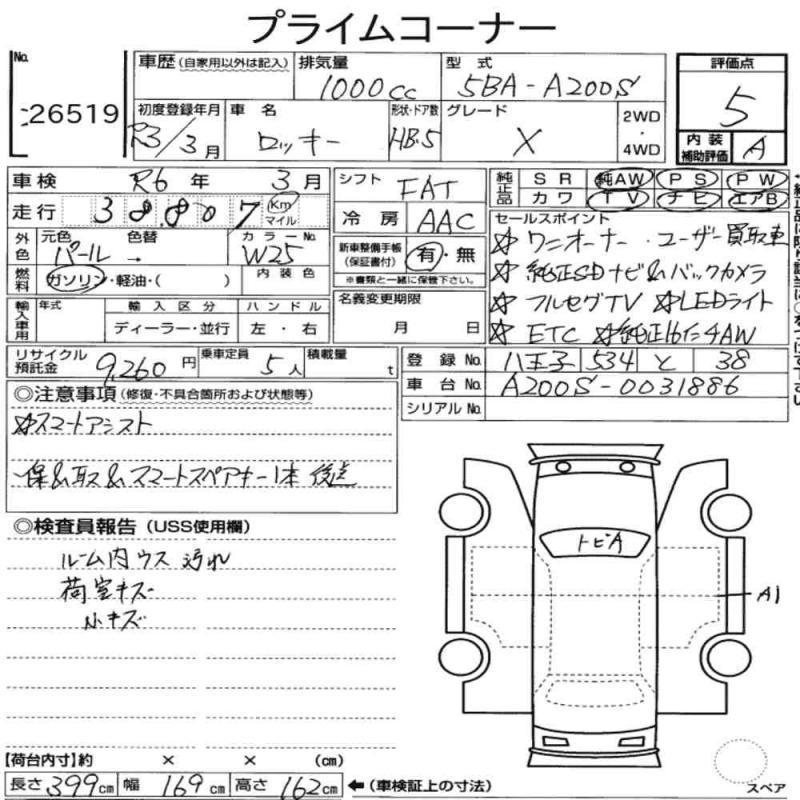 プライムコーナー
No. 26519
車歴 (自家用以外は記入) 排気量 1000cc 型式 5BA-A200S 評価点 5
初度登録年月 R3/3月 車名 ロッキー 形状・ドア数 HB・5 グレード X 2WD・4WD 内装補助評価 A
車検 R6年 3月 シフト FAT 純正品 SR 純AW PS PW
走行 38,807 Km マイル 冷房 AAC カワ TV ナビ エアB
外色 元色 パール → 色替 カラーNo. W25 新車整備手帳(保証書付) 有・無 セールスポイント
燃料 ガソリン・軽油・( ) 内装色 ※書類と一緒に保管下さい。
☆ワンオーナー・ユーザー買取車
☆純正SDナビ&バックカメラ
☆フルセグTV ☆LEDライト
☆ETC ☆純正16インチAW
輸入車用 年式 輸入区分 ハンドル 名義変更期限
ディーラー・並行 左・右 月 日
リサイクル預託金 9,260円 乗車定員 5人 積載量 t 登録No. 八王子 534 と 38
車台No. A200S-0031886
シリアルNo.
◎注意事項 (修復・不具合箇所および状態等)
☆スマートアシスト
保&取&スマートスペアキー1本 後送
◎検査員報告 (USS使用欄)
ルーム内 ウス 汚れ
荷室キズ
小キズ
トビA
A1
【荷台内寸】約 × × (cm)
長さ 399cm 幅 169cm 高さ 162cm ←(車検証上の寸法)
スペア